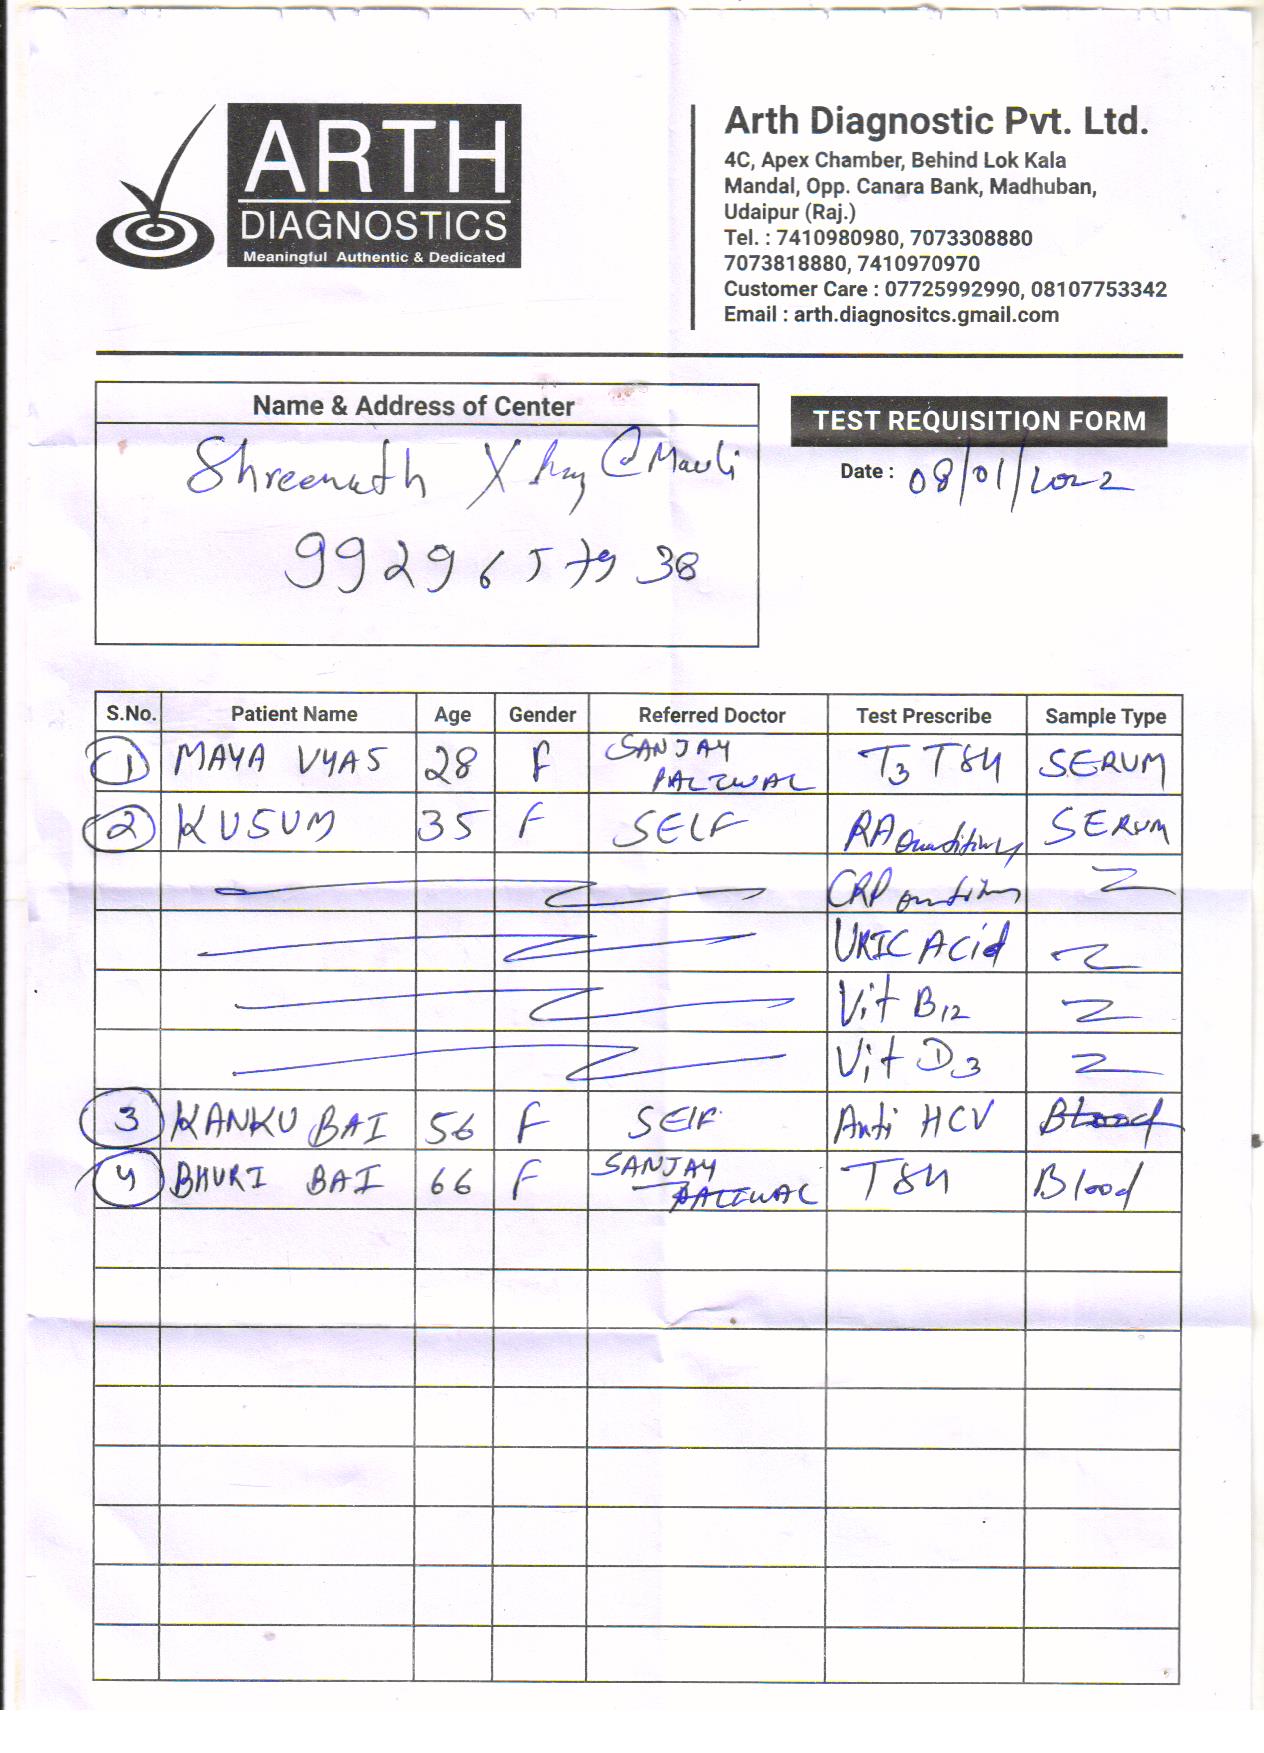 ARTH
DIAGNOSTICS
Meaningful Authentic & Dedicated
Arth Diagnostic Pvt. Ltd.
4C, Apex Chamber, Behind Lok Kala
Mandal, Opp. Canara Bank, Madhuban,
Udaipur (Raj.)
Tel. : 7410980980, 7073308880
7073818880, 7410970970
Customer Care : 07725992990, 08107753342
Email : arth.diagnositcs.gmail.com
Name & Address of Center
Shreenath X Ray @ Mavli
99296 5 38
TEST REQUISITION FORM
Date : 08/01/2022
S.No. Patient Name Age Gender Referred Doctor Test Prescribe Sample Type
1 MAYA VYAS 28 F SANJAY PALIWAL T3 TSH SERUM
2 KUSUM 35 F SELF RA Quantitive SERUM
CRP
URIC ACid
Vit B12
Vit D3
3 KANKU BAI 56 F SElF Anti HCV Blood
4 BHURI BAI 66 F SANJAY PALIWAL TSH Blood